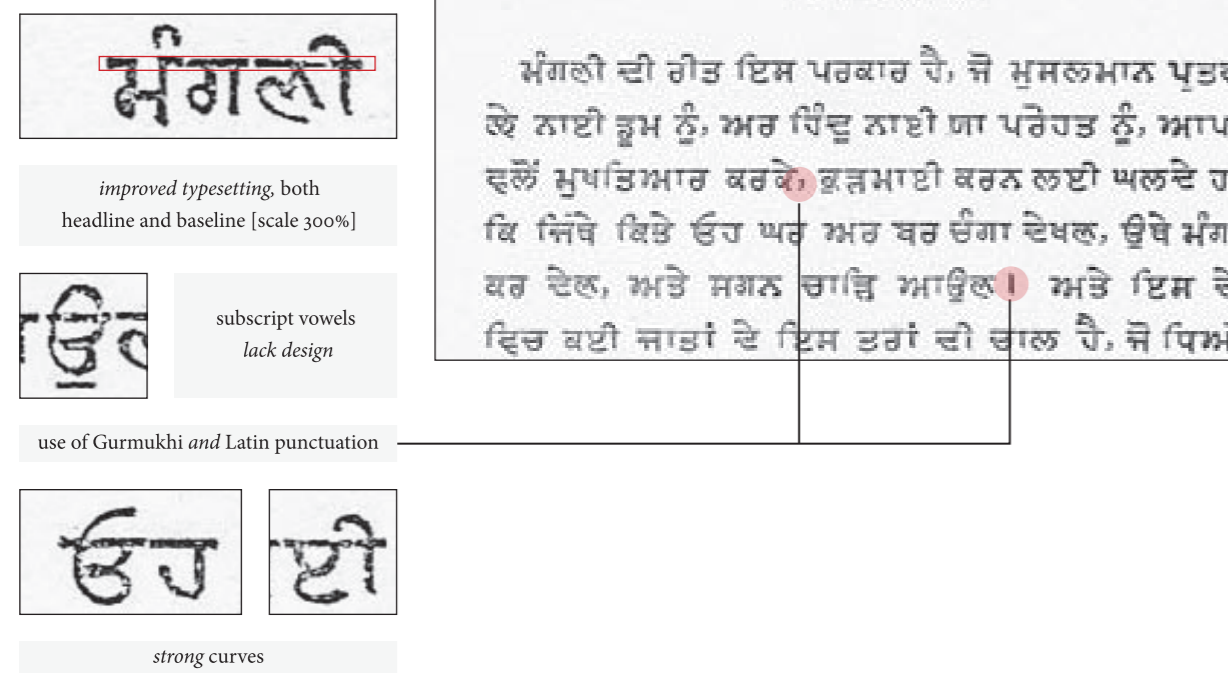 ਮੰਗਲੀ
improved typesetting, both
headline and baseline [scale 300%]
ਉ
subscript vowels
lack design
use of Gurmukhi and Latin punctuation
ਓਹ
ਈ
strong curves
ਮੰਗਲੀ ਦੀ ਰੀਤ ਇਸ ਪਰਕਾਰ ਹੈ, ਜੋ ਮੁਸਲਮਾਨ
ਲੇ ਨਾਈ ਡੂਮ ਨੂੰ, ਅਰ ਹਿੰਦੂ ਨਾਈ ਯਾ ਪਰੋਹਤ ਨੂੰ,
ਵਲੋਂ ਮੁਖਤਿਆਰ ਕਰਕੇ, ਕੁੜਮਾਈ ਕਰਨ ਲਈ ਘਲਦੇ
ਕਿ ਜਿੱਥੇ ਕਿਤੇ ਓਹ ਘਰ ਅਰ ਬਰ ਚੰਗਾ ਦੇਖਲ, ਉਥੇ
ਕਰ ਦੇਲ, ਅਤੇ ਸਗਨ ਚਾੜ੍ਹਿ ਆਉਲ। ਅਤੇ ਇਸ
ਵਿਚ ਕਈ ਜਾਤਾਂ ਦੇ ਇਸ ਤਰਾਂ ਦੀ ਚਾਲ ਹੈ, ਜੋ